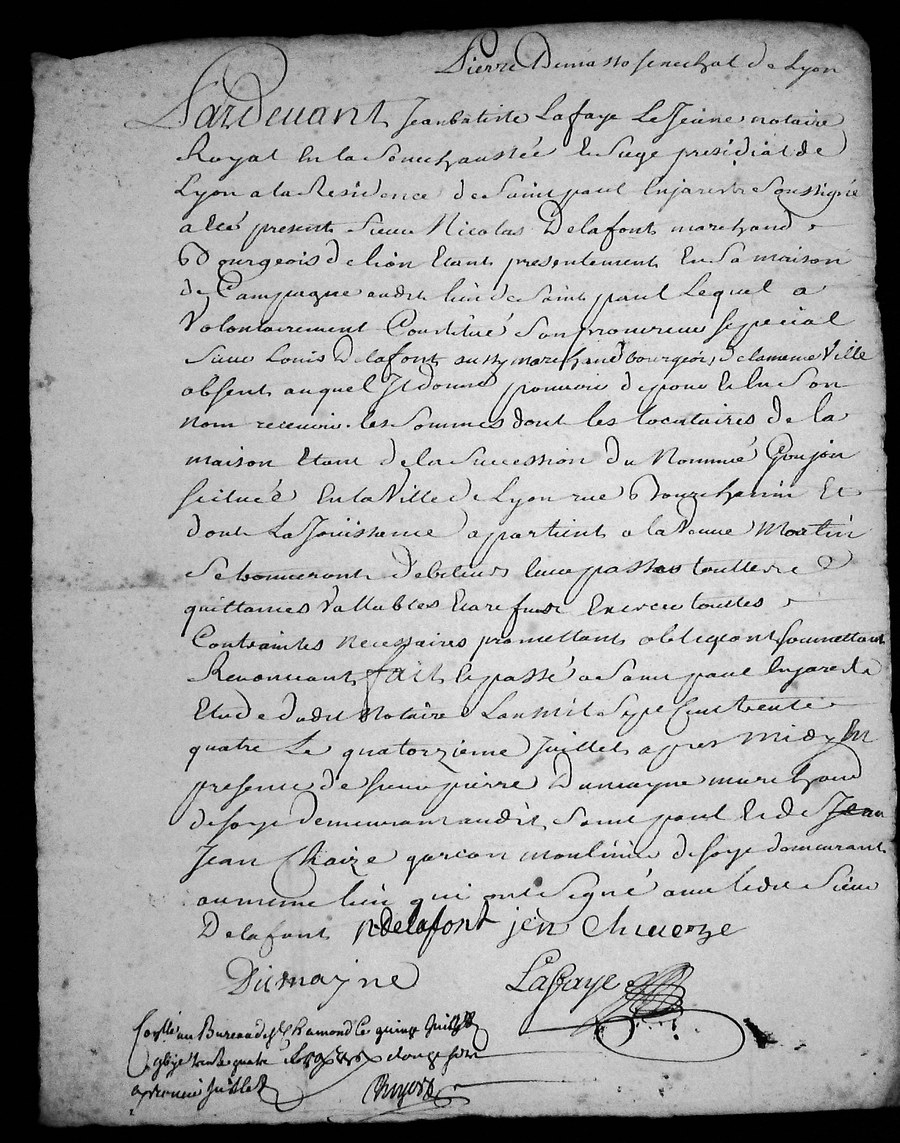 Pierre Demasso senechal de Lyon
Pardevant Jean batiste Lafaye Le Jeune notaire
Royal En la Senechaussée Et Siege presidial de
Lyon a la Residence de Saint paul En jarest Soussigné
a Eté present Sieur Nicolas Delafont marchand
Bourgeois de lion Etant presentement En Sa maison
de Campagne audit lieu de Saint paul Lequel a
Volontairement Constitué Son procureur special
Sieur Louis Delafont aussy marchand bourgeois de la meme Ville
absent auquel Il donne pouvoir de pour Et En Son
nom recevoir les Sommes dont les locataires de la
maison Etant de la Succession du Nommé Goujon
scituée En la Ville de Lyon rue Bourchanin Et
dont La Jouissance apartient a la Veuve Martin
Se trouveront debiteurs leur passer toutte
quittances Vallables Et a refus Exercer touttes
Contraintes necessaires promettant obligeant soumettant
Renoncant fait Et passé a Saint paul En jarest
Etude dudit Notaire L'an mil Sept Cent trente
quatre Le quatorzieme Juillet apres midy En
presence de sieur pierre Dumayne marchand
de soye demeurant audit Saint paul Et de Jean
Jean Chaize garcon moulinier de soye demeurant
au meme lieu qui ont Signé avec ledit Sieur
Delafont N delafont jèn Chueze
Dumayne Lafaye
au Bureau de St Chamond le quinze Juillet
trente quatre douze sols